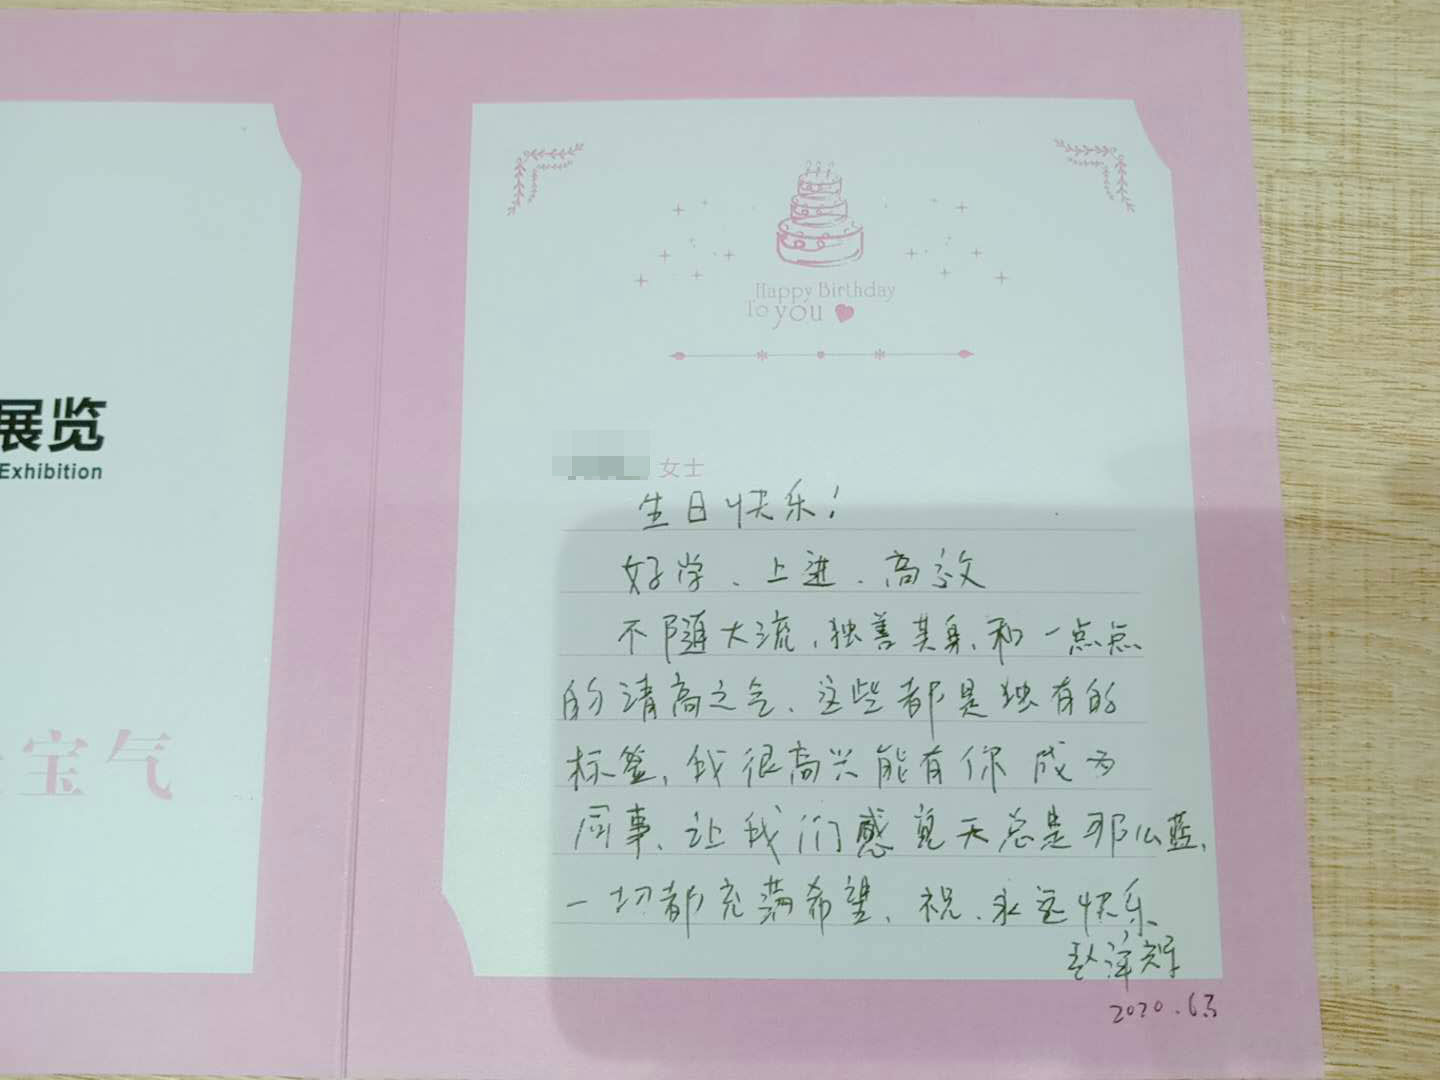 展览
Exhibition
宝气
Happy Birthday
To you
女士
生日快乐！
好学、上进、高效
不随大流、独善其身、和一点点
的清高之气、这些都是独有的
标签，我很高兴能有你成为
同事、让我们感觉天总是那么蓝、
一切都充满希望、祝、永远快乐
2020.6.3